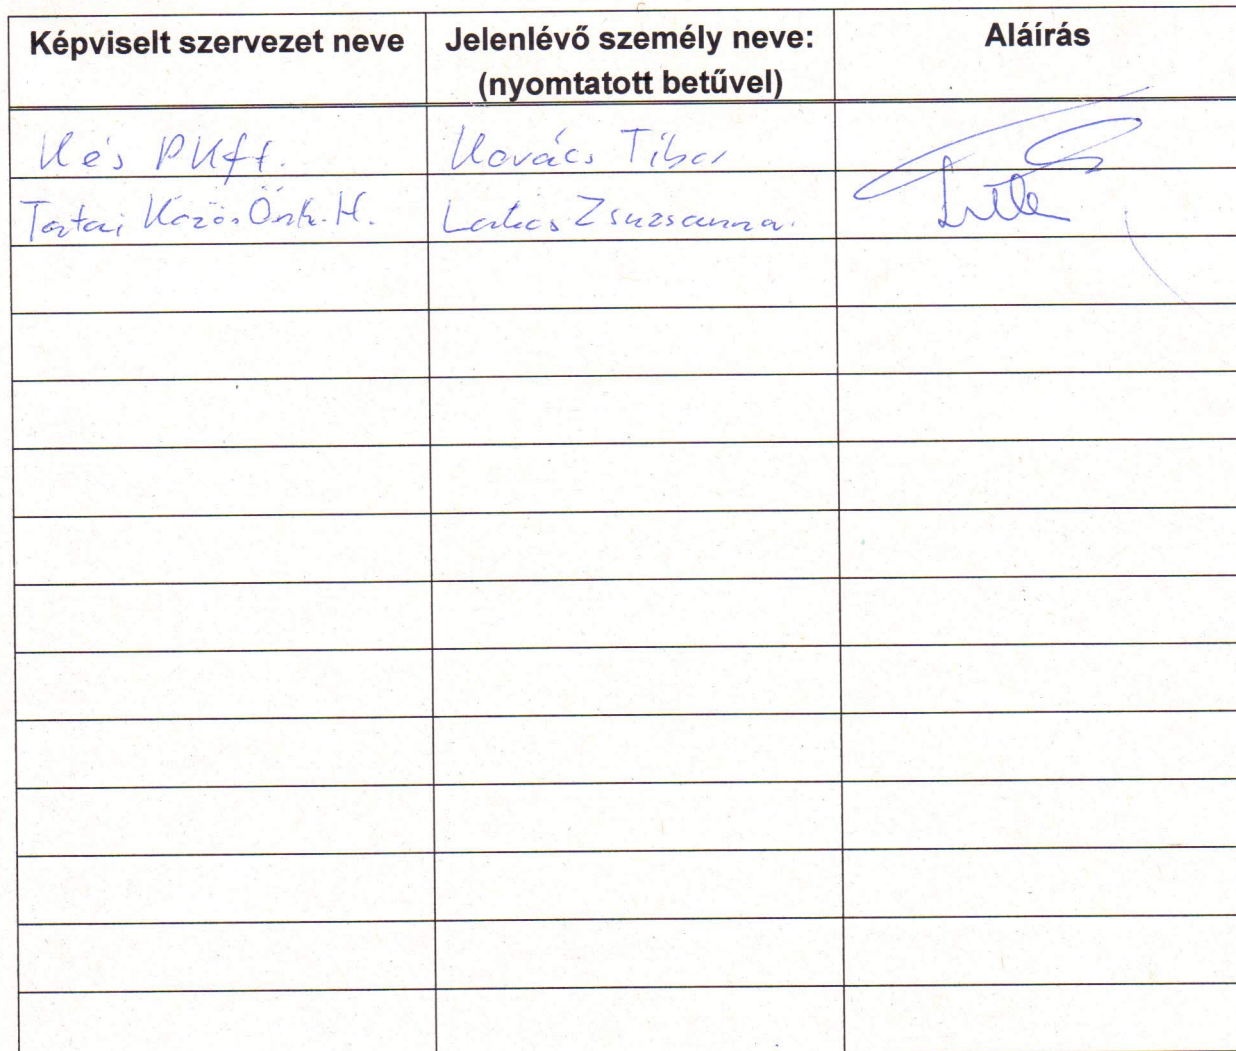 Képviselt szervezet neve
Jelenlévő személy neve:
(nyomtatott betűvel)
Aláírás
Kés PKft.
Kovács Tibor
Tatai Közös Önk. H.
Lakos Zsuzsanna.